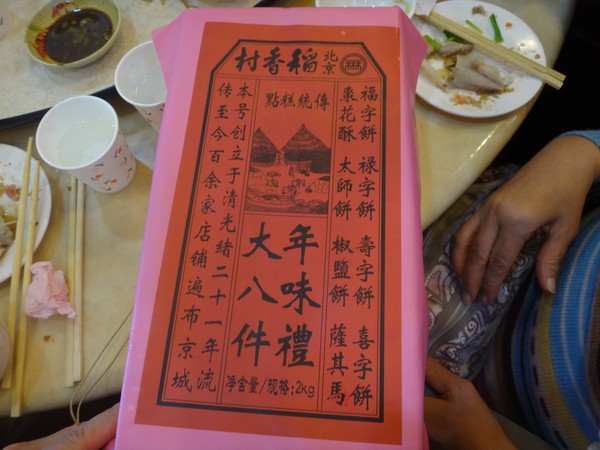 北京
稻香村
福字餅 禄字餅 壽字餅 喜字餅
棗花酥 太師餅 椒鹽餅 薩其馬
傳統糕點
年味禮
大八件
净含量/规格:2kg
本号创立于清光緒二十一年流
传至今百余家店铺遍布京城